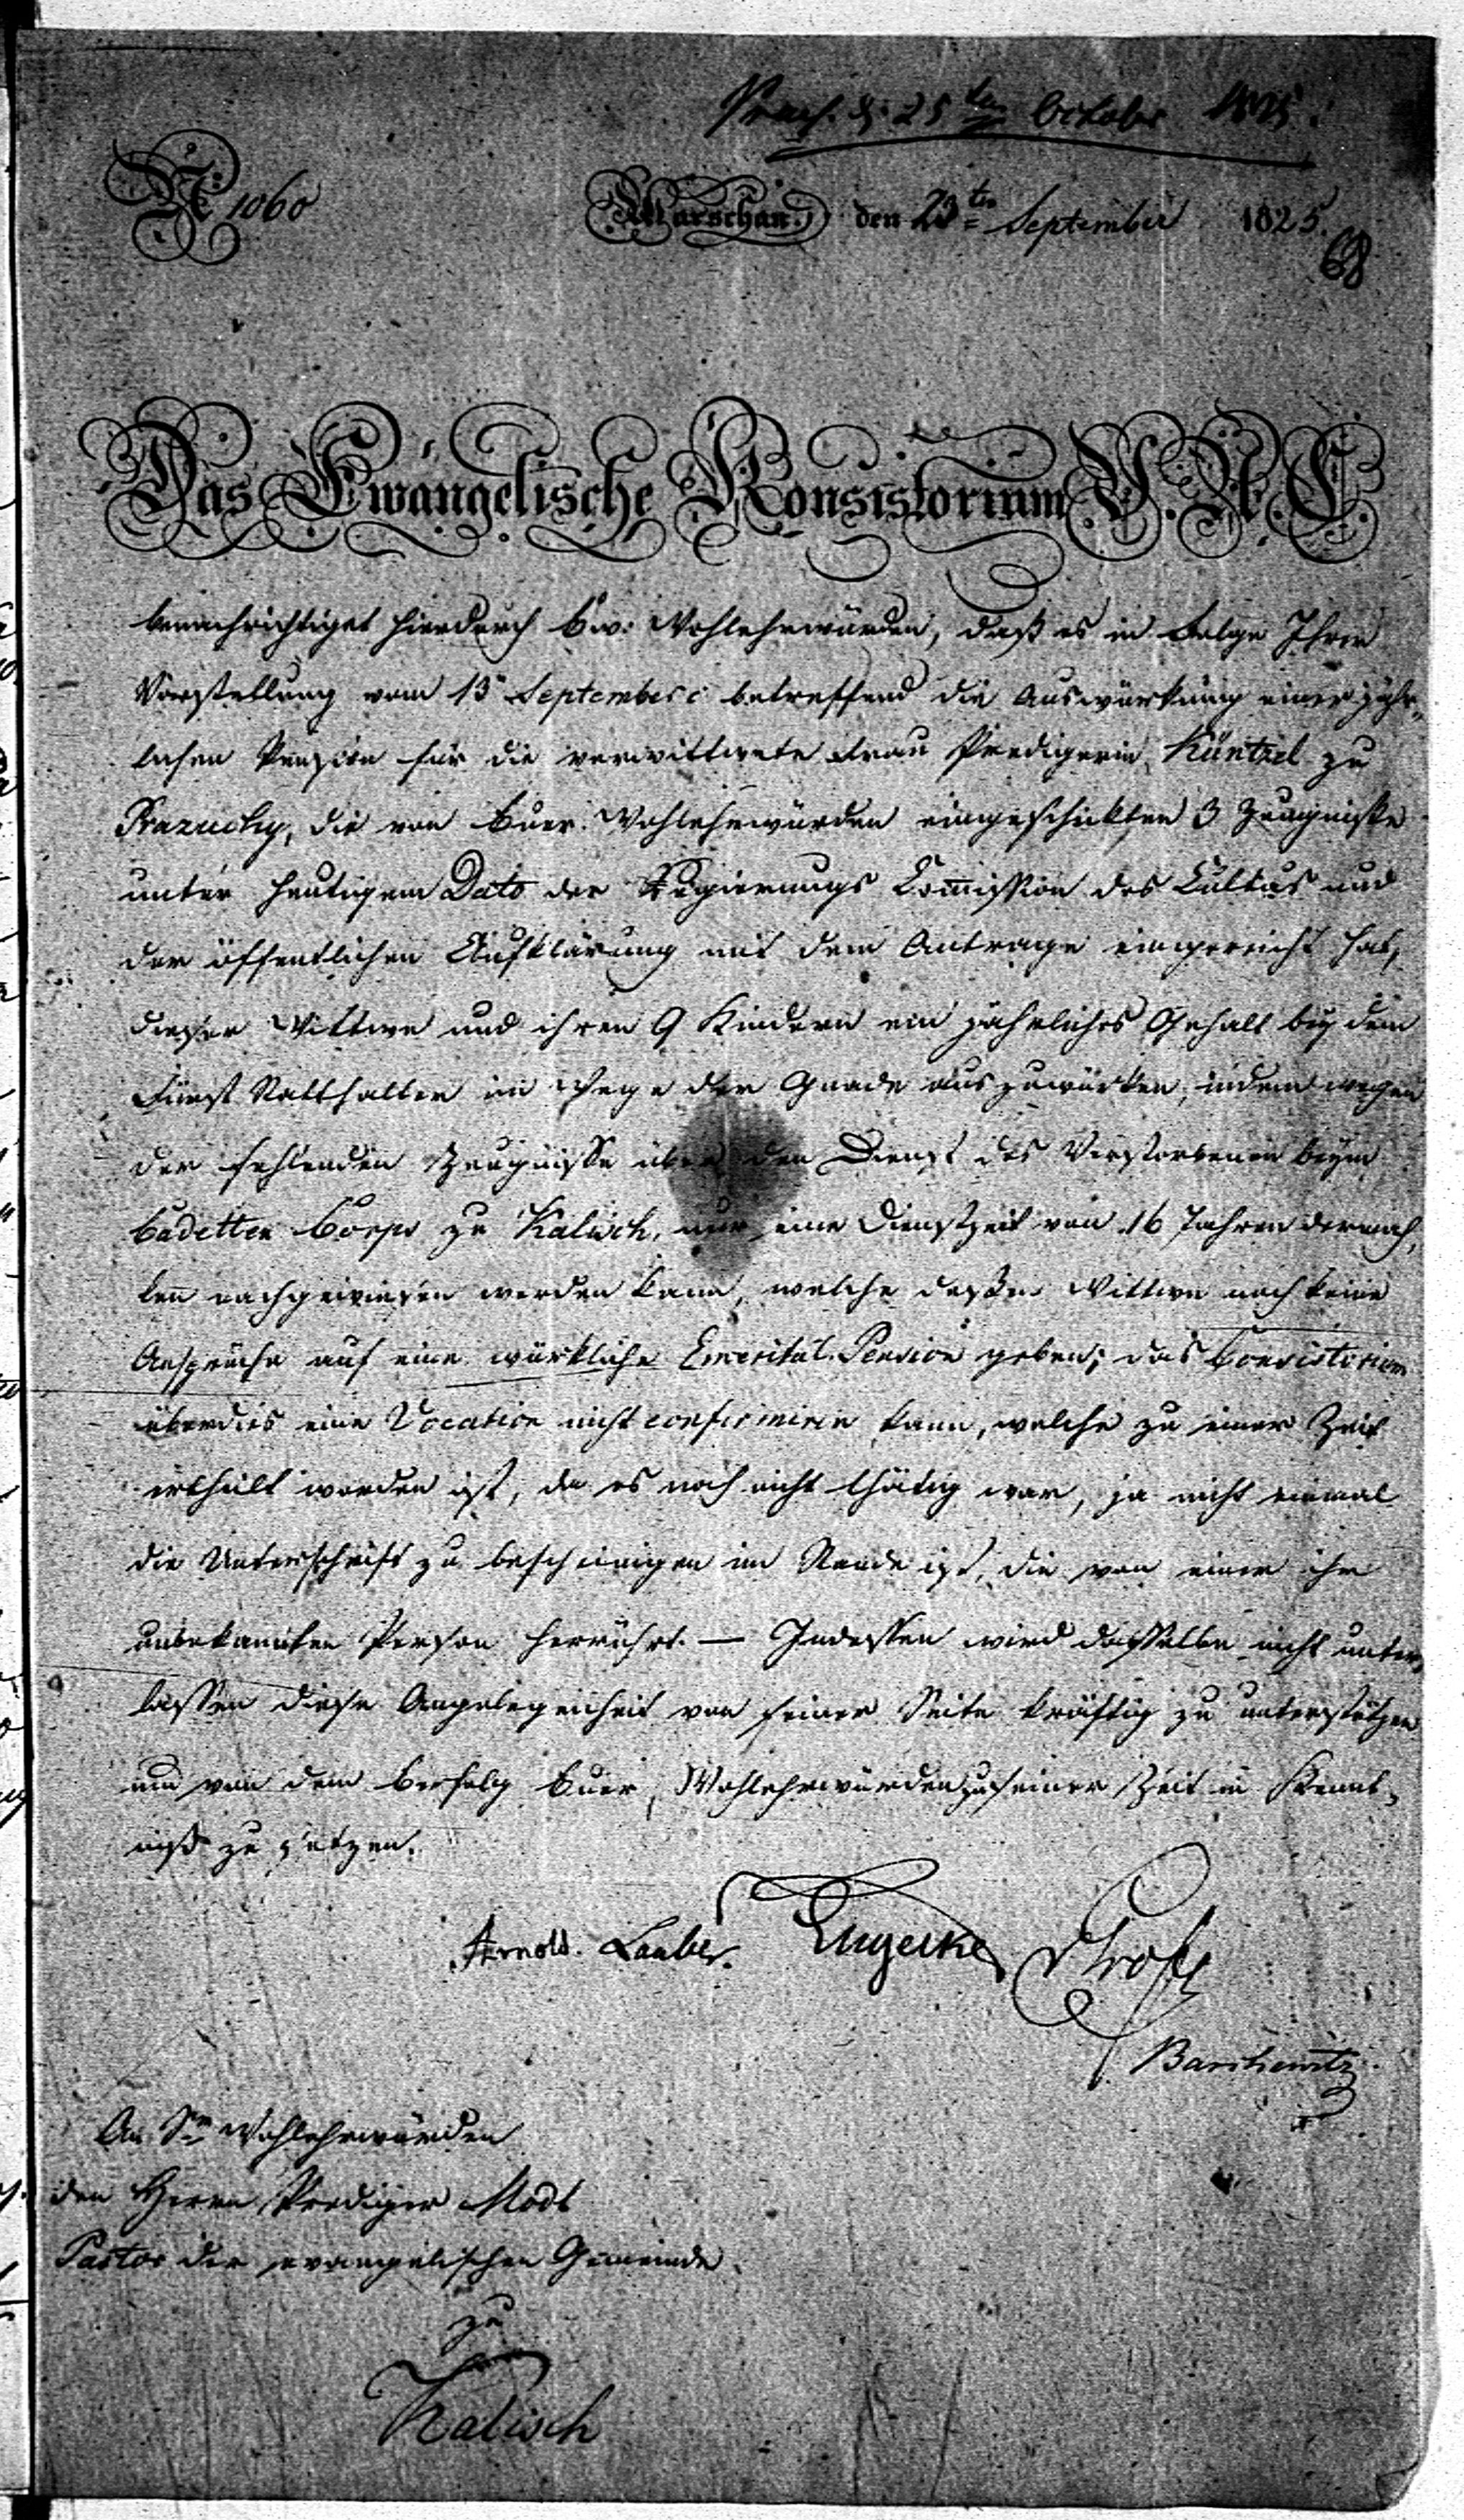 Praes. d. 25ten October 1825.
№ 1060
Warschau, den 23ten September 1825.
68
Das Ewangelische Konsistorium U. A. C.
benachrichtiget hierdurch Ew: Wohlehrwürden, daß es in Folge Ihrer
Vorstellung vom 13 September c betreffend die Auswürkung einer jähr-
lichen Pension für die verwittwete Frau Predigerin Küntzel zu
Prazuchy, die von Euer Wohlehrwürden eingeschickten 3 Zeugniße
unter heutigem Dato der Regierungs Commißion des Cultus und
der öffentlichen Aufklärung mit dem Antrage eingereicht hat,
dieser Wittwe und ihren 9 Kindern ein jährliches Gehalt bey dem
Fürst Statthalter im Wege der Gnade auszuwürken, indem wegen
der fehlenden Zeugniße über den Dienst des Verstorbenen beym
Cadetten Corps zu Kalisch, nur eine Dienstzeit von 16 Jahren dermah-
len nachgewiesen werden kann, welche deßen Wittwe noch keine
Ansprüche auf eine würkliche Emerital-Pension geben; das Consistorium
überdies eine Vocation nicht confirmiren kann, welche zu einer Zeit
ertheilt worden ist, da es noch nicht thätig war, ja nicht einmal
die Unterschrift zu bescheinigen im Stande ist, die von einer ihm
unbekannten Person herrührt. — Indessen wird dasselbe nicht unter-
lassen diese Angelegenheit von seiner Seite kräftig zu unterstützen
und von dem Erfolg Euer Wohlehrwürden zu seiner Zeit in Kennt-
niß zu setzen.
Arnold. Lauber.
Bartkewitz
An Sr Wohlehrwürden
den Herrn Prediger Modl
Pastor der evangelischen Gemeinde
zu
Kalisch